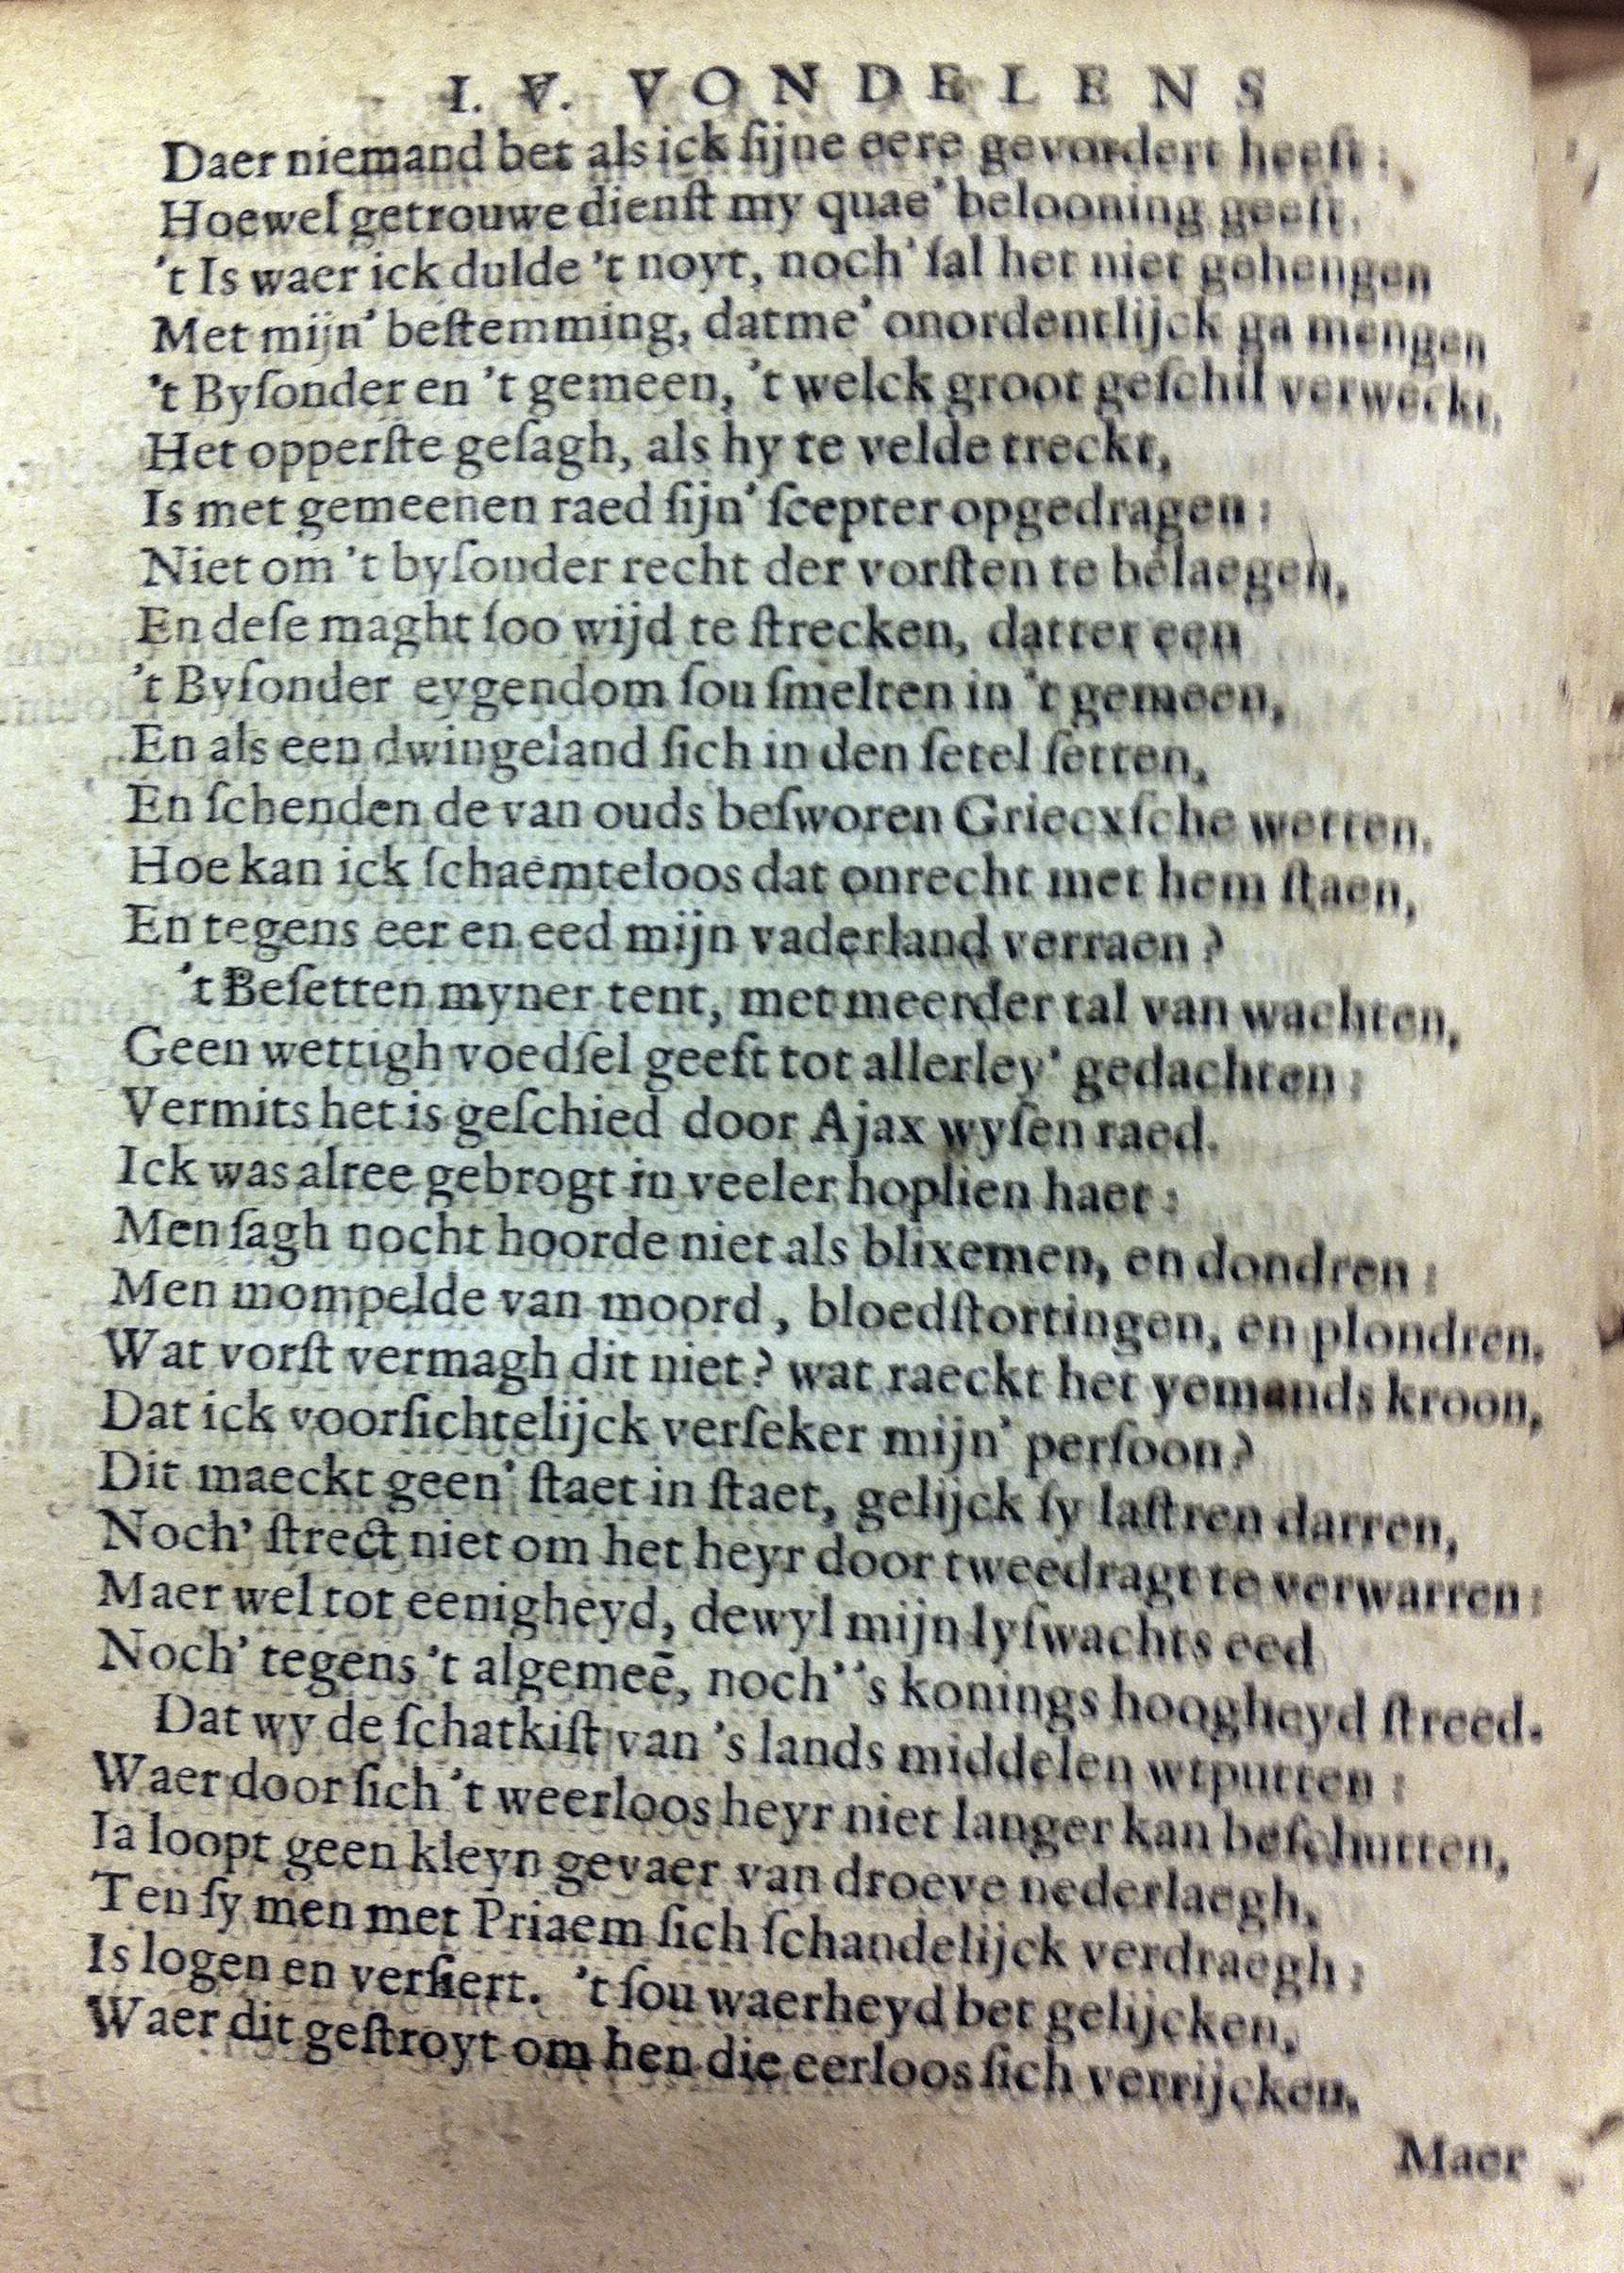 I. V. VONDELENS
Daer niemand bet als ick ſijne eere gevordert heeft:
Hoewel getrouwe dienſt my quae' belooning geeft.
't Is waer ick dulde 't noyt, noch' ſal het niet gehengen
Met mijn' beſtemming, datme' onordentlijck ga mengen
't Byſonder en 't gemeen, 't welck groot geſchil verweckt,
Het opperſte geſagh, als hy te velde treckt,
Is met gemeenen raed ſijn' ſcepter opgedragen:
Niet om 't byſonder recht der vorſten te belaegen,
En deſe maght ſoo wijd te ſtrecken, datter een
't Byſonder eygendom ſou ſmelten in 't gemeen,
En als een dwingeland ſich in den ſetel ſetten,
En ſchenden de van ouds beſworen Griecxſche wetten.
Hoe kan ick ſchaemteloos dat onrecht met hem ſtaen,
En tegens eer en eed mijn vaderland verraen?
't Beſetten myner tent, met meerder tal van wachten,
Geen wettigh voedſel geeft tot allerley' gedachten:
Vermits het is geſchied door Ajax wyſen raed.
Ick was alree gebrogt in veeler hoplien haet:
Men ſagh nocht hoorde niet als blixemen, en dondren:
Men mompelde van moord, bloedſtortingen, en plondren.
Wat vorſt vermagh dit niet? wat raeckt het yemands kroon,
Dat ick voorſichtelijck verſeker mijn' perſoon?
Dit maeckt geen' ſtaet in ſtaet, gelijck ſy laſtren darren,
Noch' ſtrect niet om het heyr door tweedragt te verwarren:
Maer wel tot eenigheyd, dewyl mijn lyfwachts eed
Noch' tegens 't algemeē, noch' 's konings hoogheyd ſtreed.
Dat wy de ſchatkiſt van 's lands middelen wtputten:
Waer door ſich 't weerloos heyr niet langer kan beſchutten,
Ia loopt geen kleyn gevaer van droeve nederlaegh,
Ten ſy men met Priaem ſich ſchandelijck verdraegh:
Is logen en verſiert. 't ſou waerheyd bet gelijcken,
Waer dit geſtroyt om hen die eerloos ſich verrijcken.
Maer